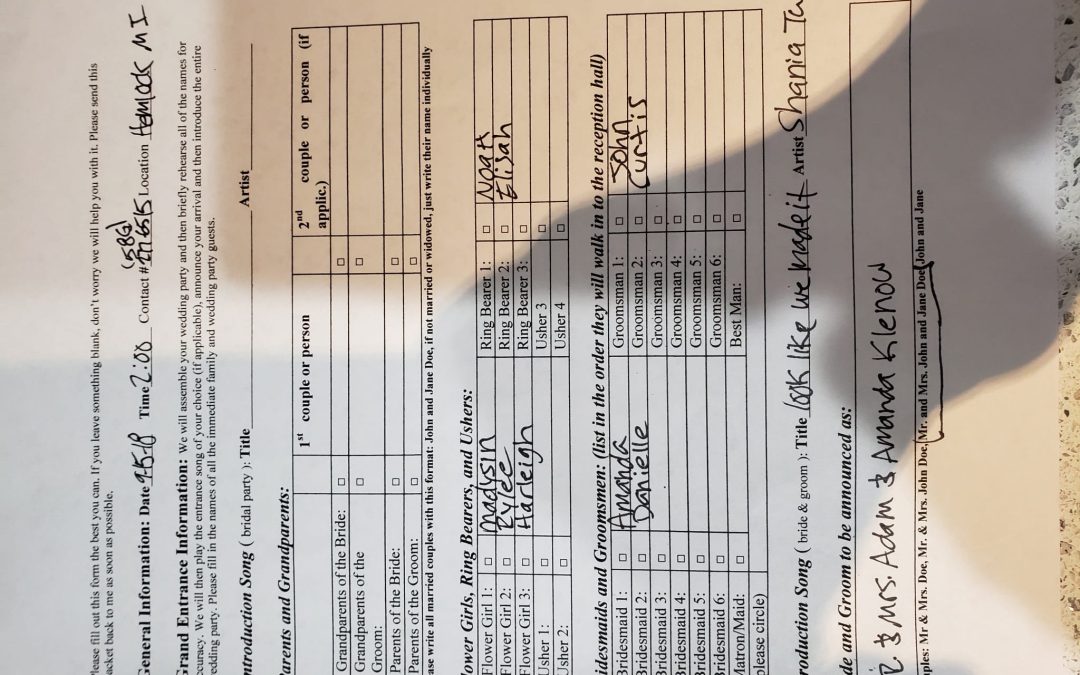 Please fill out this form the best you can. If you leave something blank, don't worry we will help you with it. Please send this
packet back to me as soon as possible.
General Information: Date 9-15-18 Time 2:00 Contact # Location Hemlock MI
Grand Entrance Information: We will assemble your wedding party and then briefly rehearse all of the names for
accuracy. We will then play the entrance song of your choice (if applicable), announce your arrival and then introduce the entire
wedding party. Please fill in the names of all the immediate family and wedding party guests.
ntroduction Song ( bridal party ): Title Artist
Parents and Grandparents:
1st couple or person 2nd couple or person (if applic.)
Grandparents of the Bride: □ □
Grandparents of the Groom: □ □
Parents of the Bride: □ □
Parents of the Groom: □ □
ase write all married couples with this format: John and Jane Doe, if not married or widowed, just write their name individually
lower Girls, Ring Bearers, and Ushers:
Flower Girl 1: □ Madysin Ring Bearer 1: □ Noah
Flower Girl 2: □ Rylee Ring Bearer 2: □ Elijah
Flower Girl 3: □ Harleigh Ring Bearer 3: □
Usher 1: □ Usher 3 □
Usher 2: □ Usher 4 □
idesmaids and Groomsmen: (list in the order they will walk in to the reception hall)
Bridesmaid 1: □ Amanda Groomsman 1: □ John
Bridesmaid 2: □ Danielle Groomsman 2: □ Curtis
Bridesmaid 3: □ Groomsman 3: □
Bridesmaid 4: □ Groomsman 4: □
Bridesmaid 5: □ Groomsman 5: □
Bridesmaid 6: □ Groomsman 6: □
Matron/Maid: □ Best Man: □
please circle)
roduction Song ( bride & groom ): Title look like we made it Artist Shania
de and Groom to be announced as:
& Mrs. Adam & Amanda Klenow
mples: Mr & Mrs. Doe, Mr. & Mrs. John Doe, Mr. and Mrs. John and Jane Doe, John and Jane